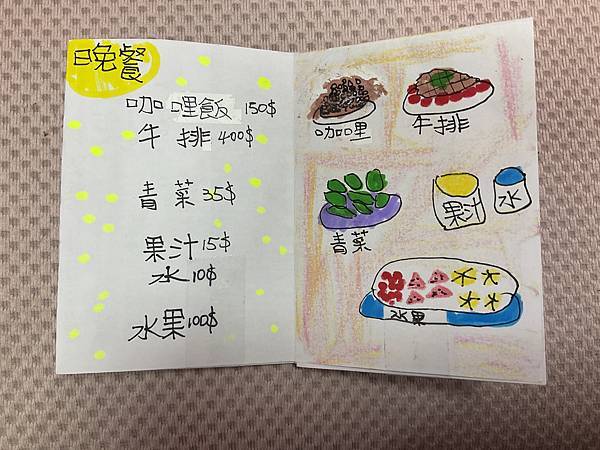 晚餐
咖哩飯 150$
牛排 400$
青菜 35$
果汁 15$
水 10$
水果 100$
咖哩
牛排
青菜
果汁
水
水果